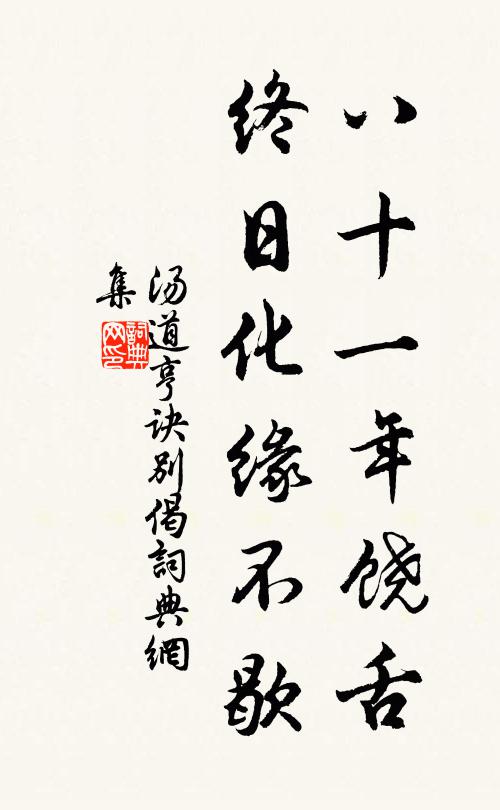 八十一年饶舌
终日化缘不歇
汤道亨诀别偈詞典網
集
詞典网印